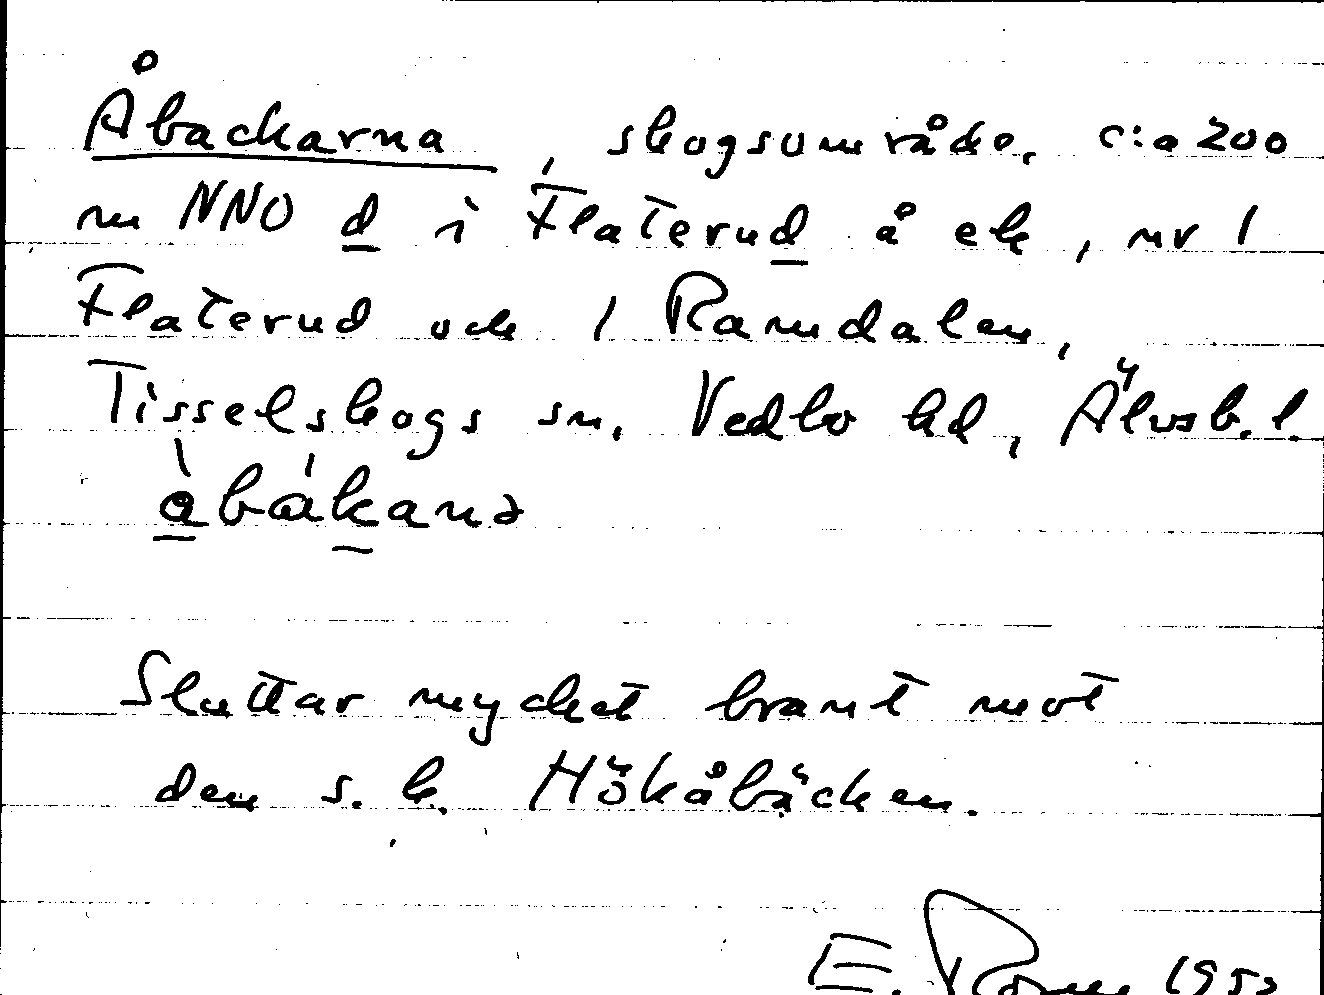 Åbackarna, skogsområde, c:a 200
m NNO d i Flaterud å ek, nr 1
Flaterud och 1 Ramdalen,
Tisselskogs sn. Vedbo hd, Älvsb. l.
àbákanə
Sluttar mycket brant mot
den s. k. Hökåbäcken.
E. 195